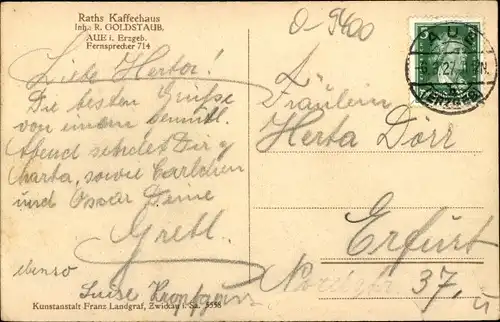 Raths Kaffeehaus
Inh.: R. GOLDSTAUB.
AUE i. Erzgeb.
Fernsprecher 714
o-9400
5
AUE
(ERZGEB)
Liebe Herta!
Die besten Grüße
von einem gemütl.
Abend sendet Dir
Charta, sowie Carlchen
und Ossar Deine
Gretl.
ebenso
Luise
Fräulein
Herta Dörr
Erfurt
37, II
Kunstanstalt Franz Landgraf, Zwickau i. Sa. 5558